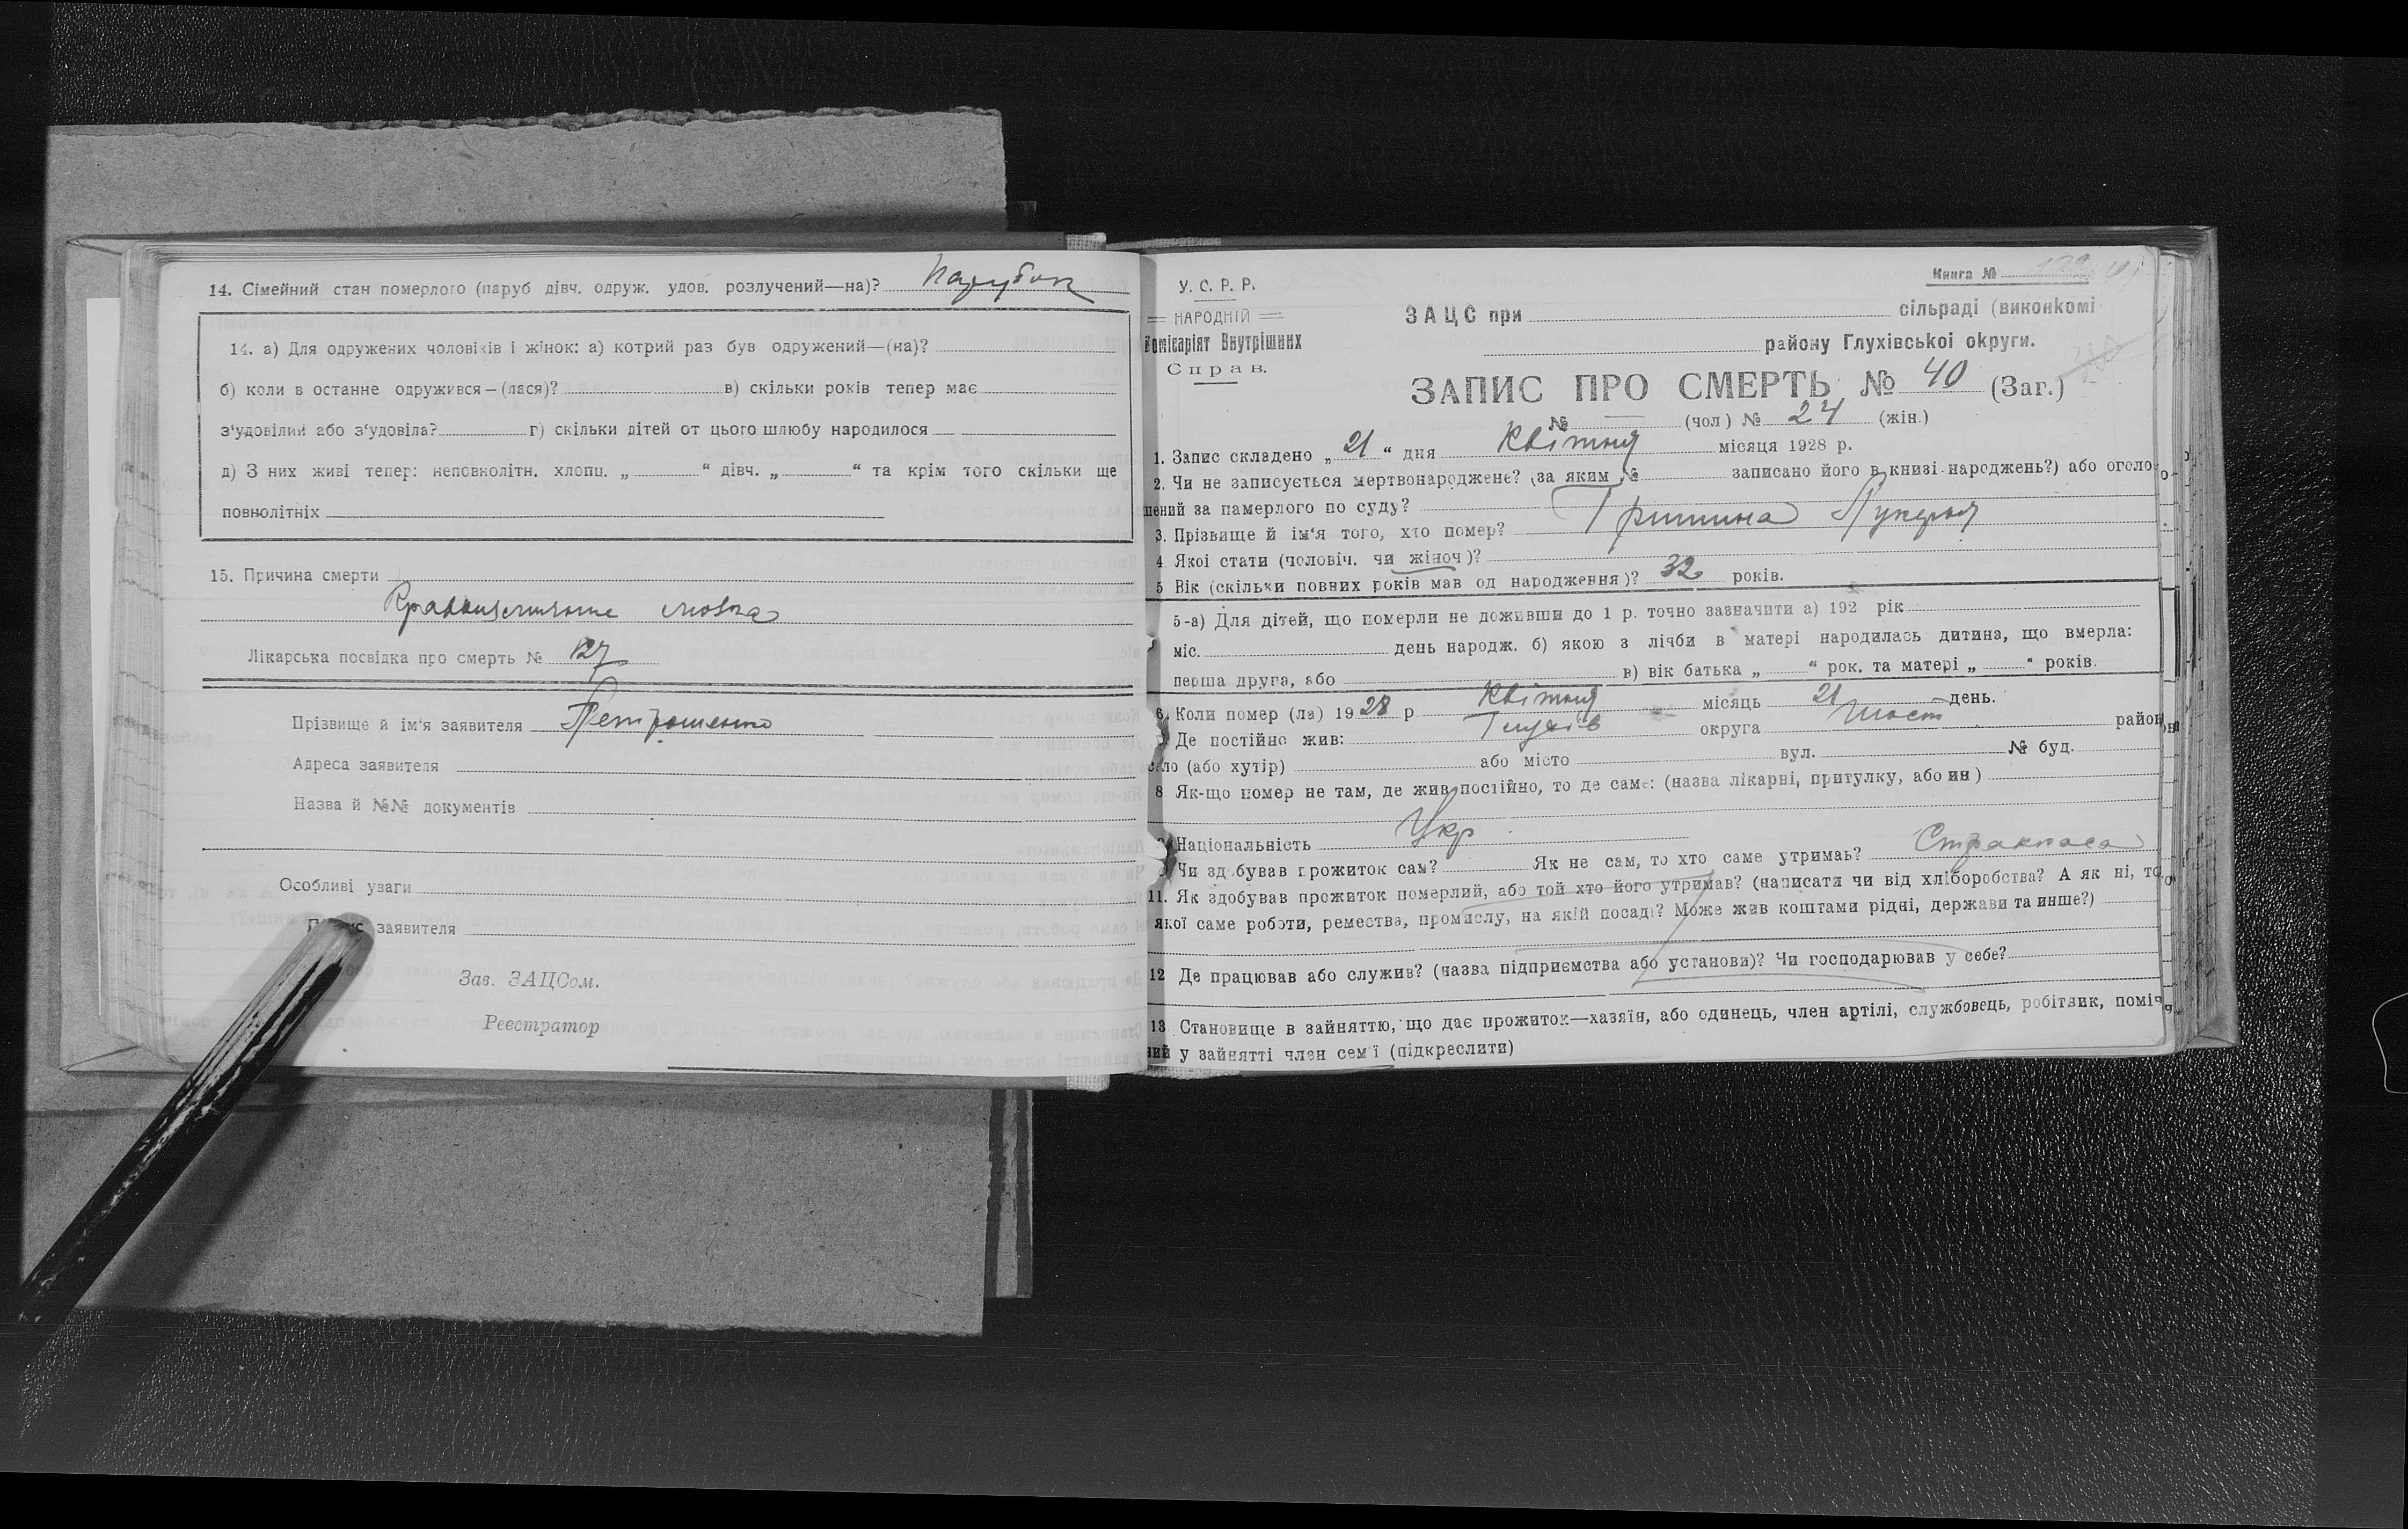 14. Сімейний стан померлого (паруб дівч. одруж. удов. розлучений—на)? парубок
14. а) Для одружених чоловіків і жінок: а) котрий раз був одружений—(на)?
б) коли в останне одружився—(лася)? в) скільки років тепер має
з‘удовілий або з‘удовіла? г) скільки дітей от цього шлюбу народилося
д) З них живі тепер: неповнолітн. хлопц. „ “ дівч. „ “ та крім того скільки ще
повнолітніх
15. Причина смерти
мозка
Лікарська посвідка про смерть № 127
Прізвище й ім'я заявителя Петрошенко
Адреса заявителя
Назва й №№ документів
Особливі уваги
заявителя
Зав. ЗАЦСом.
Реєстратор
Книга №
У. С. Р. Р.
НАРОДНІЙ
Комісаріят Внутрішних
Справ.
ЗАЦС при сільраді (виконкомі
району Глухівської округи.
ЗАПИС ПРО СМЕРТЬ № 40 (Заг.)
№ — (чол) № 24 (жін.)
1. Запис складено „ 21 “ дня Квітня місяця 1928 р.
2. Чи не записується мертвонароджене? (за яким № записано його в книзі народжень?) або оголо-
шений за памерлого по суду?
3. Прізвище й ім‘я того, хто помер? Гришина Лукерья
4. Якої стати (чоловіч. чи жіноч)?
5 Вік (скільки повних років мав од народження)? 32 років.
5-а) Для дітей, що померли не доживши до 1 р. точно зазначити а) 192 рік
міс. день народж. б) якою з лічби в матері народилась дитина, що вмерла:
перша друга, або в) вік батька „ “ рок. та матері „ “ років.
6. Коли помер (ла) 1928 р Квітня місяць 21 день.
Де постійно жив: Глухів округа Шост район
село (або хутір) або місто вул. № буд.
8. Як-що помер не там, де жив постійно, то де саме: (назва лікарні, притулку, або ин)
Національність Укр
Чи здобував прожиток сам? Як не сам, то хто саме утримав?
11. Як здобував прожиток померлий, або той хто його утримав? (написати чи від хліборобства? А як ні, то
якої саме роботи, ремества, промислу, на якій посаді? Може жив коштами рідні, держави та инше?)
12 Де працював або служив? (назва підприємства або установи)? Чи господарював у себе?
13 Становище в зайняттю, що дає прожиток—хазяїн, або одинець, член артілі, службовець, робітник, поміч
ний у зайнятті член сем'ї (підкреслити)